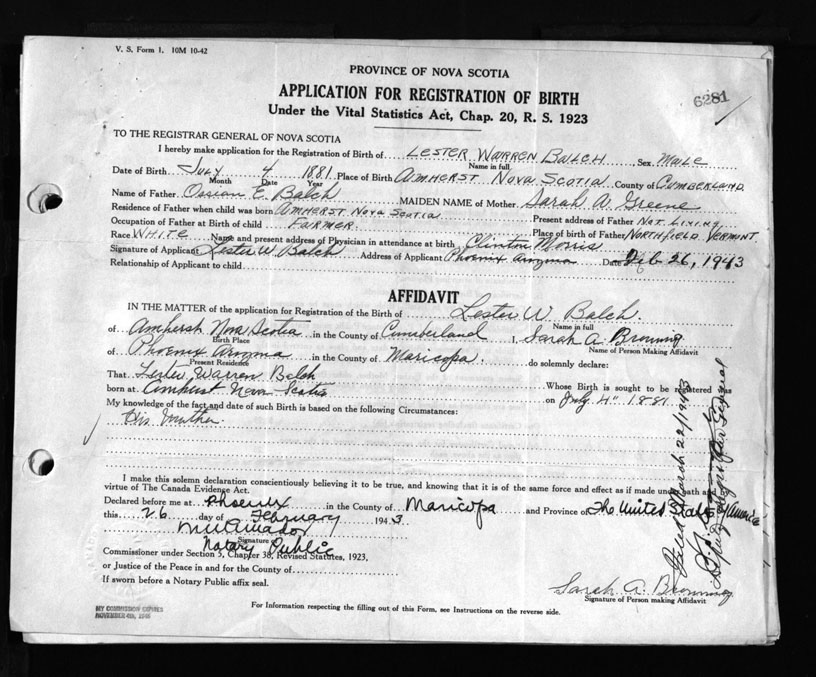 V. S. Form 1. 10M 10-42
PROVINCE OF NOVA SCOTIA
APPLICATION FOR REGISTRATION OF BIRTH
6281
Under the Vital Statistics Act, Chap. 20, R. S. 1923
TO THE REGISTRAR GENERAL OF NOVA SCOTIA
I hereby make application for the Registration of Birth of LESTER WARREN BALCH, Sex Male
Name in full
Date of Birth July 4 1881 Place of Birth AMHERST NOVA SCOTIA County of CUMBERLAND
Month Date Year
Name of Father Ossian E. Balch MAIDEN NAME of Mother Sarah A. Greene
Residence of Father when child was born AMHERST NOVA SCOTIA Present address of Father NOT LIVING
Occupation of Father at Birth of child FARMER. Place of birth of Father NORTHFIELD VERMONT
Race WHITE Name and present address of Physician in attendance at birth Clinton Morris
Signature of Applicant Lester W. Balch Address of Applicant Phoenix Arizona Date Feb. 26, 1943
Relationship of Applicant to child
AFFIDAVIT
IN THE MATTER of the application for Registration of the Birth of Lester W. Balch.
Name in full
of Amherst Nova Scotia in the County of Cumberland I, Sarah A. Browning
Birth Place Name of Person Making Affidavit
of Phoenix Arizona in the County of Maricopa. do solemnly declare:
Present Residence
That Lester Warren Balch Whose Birth is sought to be registered was
born at Amherst Nova Scotia on July 4" 1881
My knowledge of the fact and date of such Birth is based on the following Circumstances:
His Mother.
I make this solemn declaration conscientiously believing it to be true, and knowing that it is of the same force and effect as if made under oath and by
virtue of The Canada Evidence Act.
Declared before me at Phoenix in the County of Maricopa and Province of The United States of America
this 26 day of February 1943
Signature of
Notary Public
Commissioner under Section 5, Chapter 38, Revised Statutes, 1923,
or Justice of the Peace in and for the County of
If sworn before a Notary Public affix seal.
Sarah A. Browning
Signature of Person making Affidavit
For Information respecting the filling out of this Form, see Instructions on the reverse side.
MY COMMISSION EXPIRES
Filed March 22/1943
Deputy Registrar General